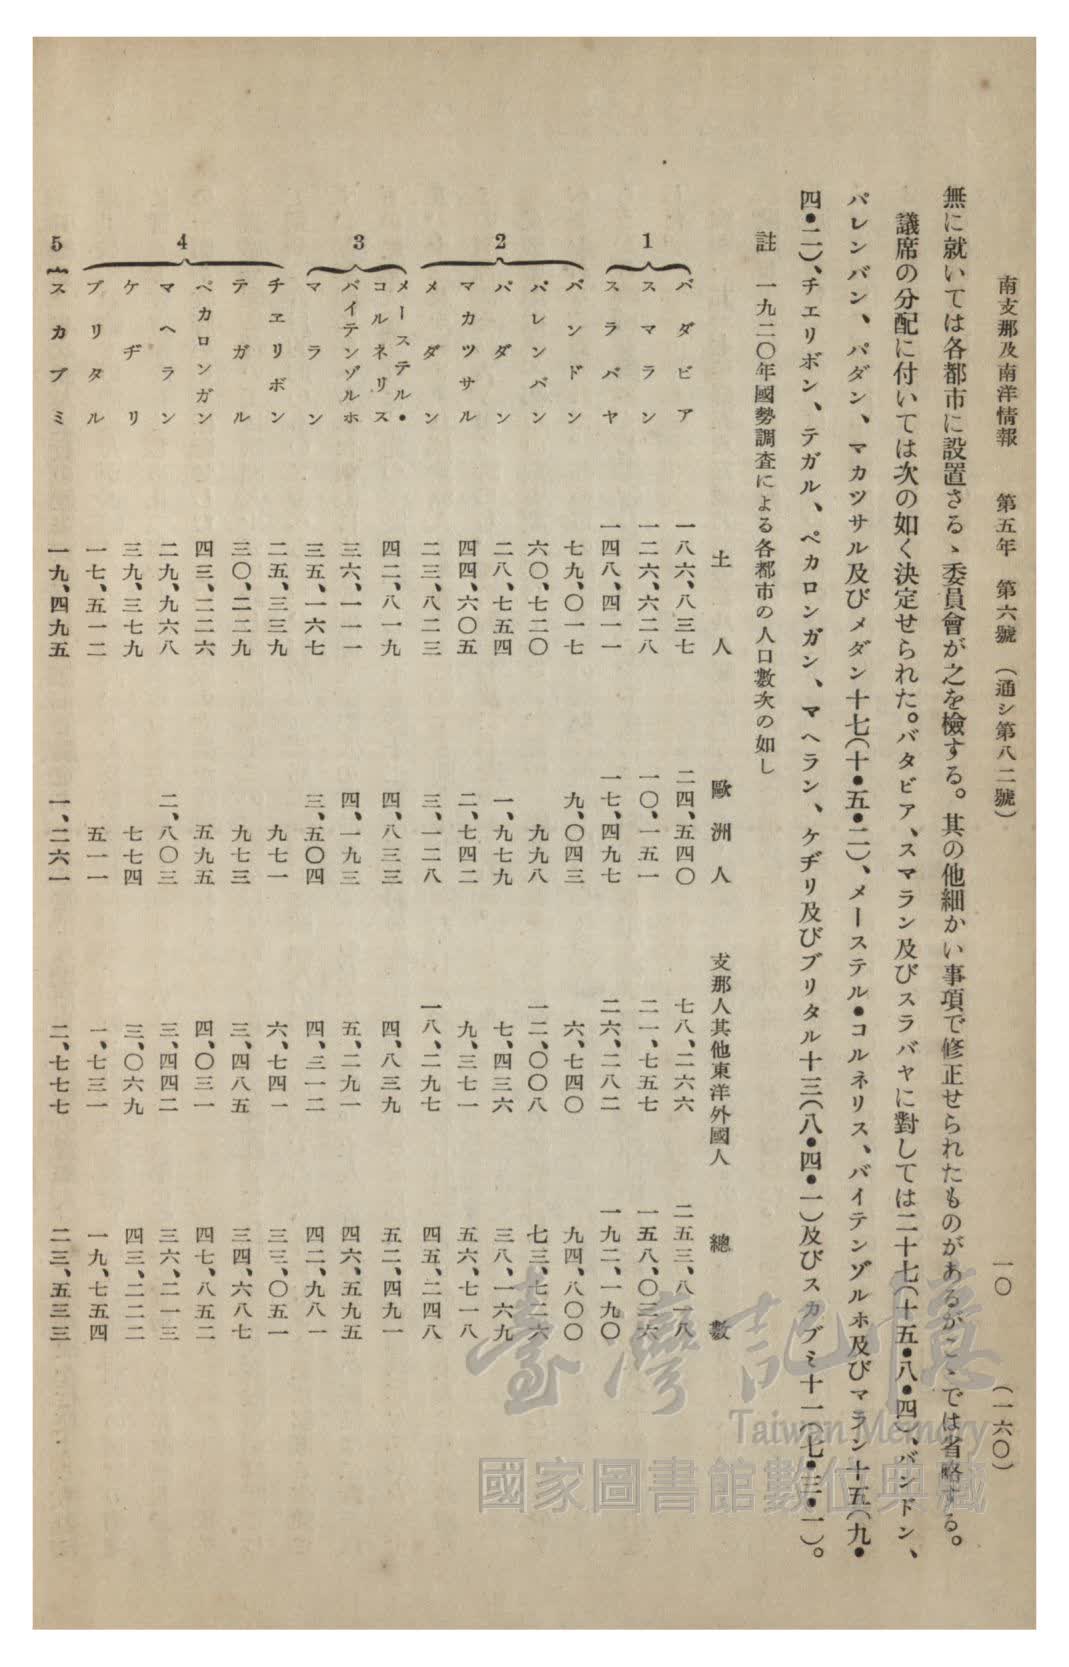 南支那及南洋情報　第五年　第六號　（通シ第八二號）　一〇　（一六〇）
無に就いては各都市に設置さるゝ委員會が之を檢する。其の他細かい事項で修正せられたものがあるがこゝでは省略する。
議席の分配に付いては次の如く決定せられた。バタビア、スマラン及びスラバヤに對しては二十七（十五・八・四）、バンドン、
パレンバン、パダン、マカツサル及びメダン十七（十・五・二）、メーステル・コルネリス、バイテンゾルホ及びマラン十五（九・
四・二）、チエリボン、テガル、ペカロンガン、マヘラン、ケヂリ及びブリタル十三（八・四・一）及びスカブミ十一（七・三・一）。
註　一九二〇年國勢調査による各都市の人口數次の如し
土人　歐洲人　支那人其他東洋外國人　總數
1　バダビア　一八六、八三七　二四、五四〇　七八、二六六　二五三、八一八
スマラン　一二六、六二八　一〇、一五一　二一、七五七　一五八、〇三六
スラバヤ　一四八、四一一　一七、四九七　二六、二八二　一九二、一九〇
2　バンドン　七九、〇一七　九、〇四三　六、七四〇　九四、八〇〇
パレンバン　六〇、七二〇　九九八　一二、〇〇八　七三、七二六
パダン　二八、七五四　一、九七九　七、四三六　三八、一六九
マカツサル　四四、六〇五　二、七四二　九、三七一　五六、七一八
メダン　二三、八二三　三、一二八　一八、二九七　四五、二四八
3　メーステル・コルネリス　四二、八一九　四、八三三　四、八三九　五二、四九一
バイテンゾルホ　三六、一一一　四、一九三　五、二九一　四六、五九五
マラン　三五、一六七　三、五〇四　四、三一二　四二、九八一
4　チエリボン　二五、三三九　九七一　六、七四一　三三、〇五一
テガル　三〇、二二九　九七三　三、四八五　三四、六八七
ペカロンガン　四三、二二六　五九五　四、〇三一　四七、八五二
マヘラン　二九、九六八　二、八〇三　三、四四二　三六、二一三
ケヂリ　三九、三七九　七七四　三、〇六九　四三、二二二
ブリタル　一七、五一二　五一一　一、七三一　一九、七五四
5　スカブミ　一九、四九五　一、二六一　二、七七七　二三、五三三
臺灣記憶
Taiwan Memory
國家圖書館數位典藏